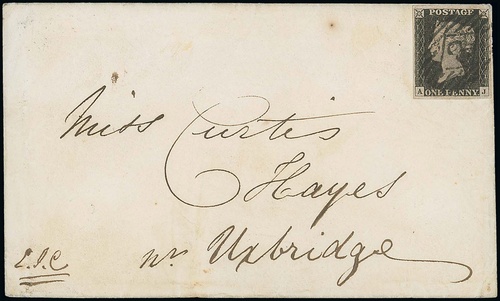 POSTAGE
A ONE PENNY J
Miss Curtis
Hayes
nr Uxbridge
E.J.C